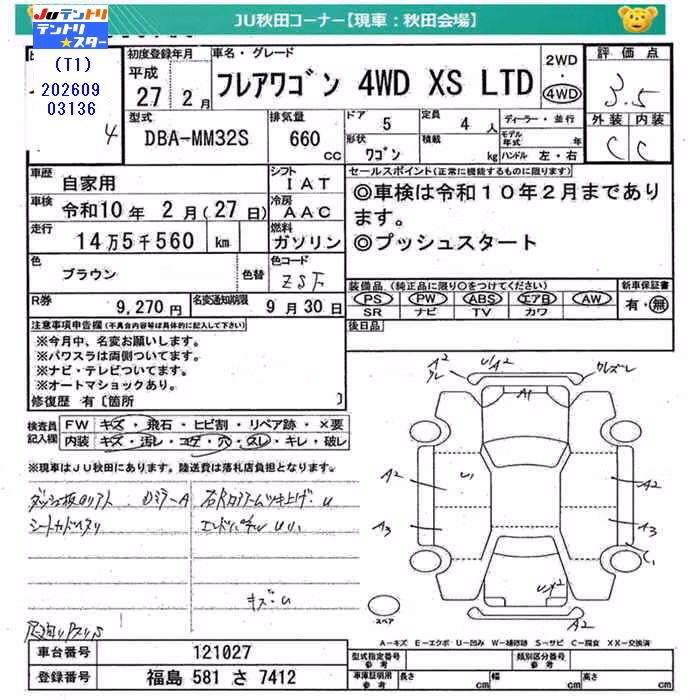 JU秋田コーナー【現車：秋田会場】
JUテントリ
テントリ★スター
(T1)
202609
03136
4
初度登録年月
平成
27 2月
車名・グレード
フレアワゴン 4WD XS LTD
2WD
・
4WD
評価点
3.5
外装 内装
C C
型式
DBA-MM32S
排気量
660
CC
ドア
5
定員
4人
形状
ワゴン
積載
kg
ディーラー・並行
モデル年式 年
ハンドル 左・右
車歴
自家用
シフト
IAT
車検
令和10年 2月(27日)
冷房
AAC
走行
14万5千560 km
燃料
ガソリン
色
ブラウン
色替
色コード
ZSF
R券
9,270円
名変通知期限
9月30日
セールスポイント(正常に機能するものに限ります)
◎車検は令和10年2月まであり
ます。
◎プッシュスタート
装備品(純正品に限り○をつけてください)
PS PW ABS エアB AW
SR ナビ TV カワ
新車保証書
有・無
後日品
注意事項申告欄(不具合内容等は具体的に記入して下さい)
※今月中、名変お願いします。
※パワスラは両側ついてます。
※ナビ・テレビついてます。
※オートマショックあり。
修復歴 有〔箇所 〕
検査員
記入欄
FW キズ・飛石・ヒビ割・リペア跡・×要
内装 キズ・汚レ・コゲ・穴・スレ・キレ・破レ
※現車はJU秋田にあります。陸送費は落札店負担となります。
キズ・U
A2
U/A2
A1
A2
U1
A2
A3
A3
C1
A2
スペア
A－キズ E－エクボ U－凹み W－補修跡 S－サビ C－腐食 XX－交換済
車台番号
121027
登録番号
福島 581 さ 7412
型式指定番号
参考
類別区分番号
参考
車庫証明用
参考
長さ cm
幅 cm
高さ cm